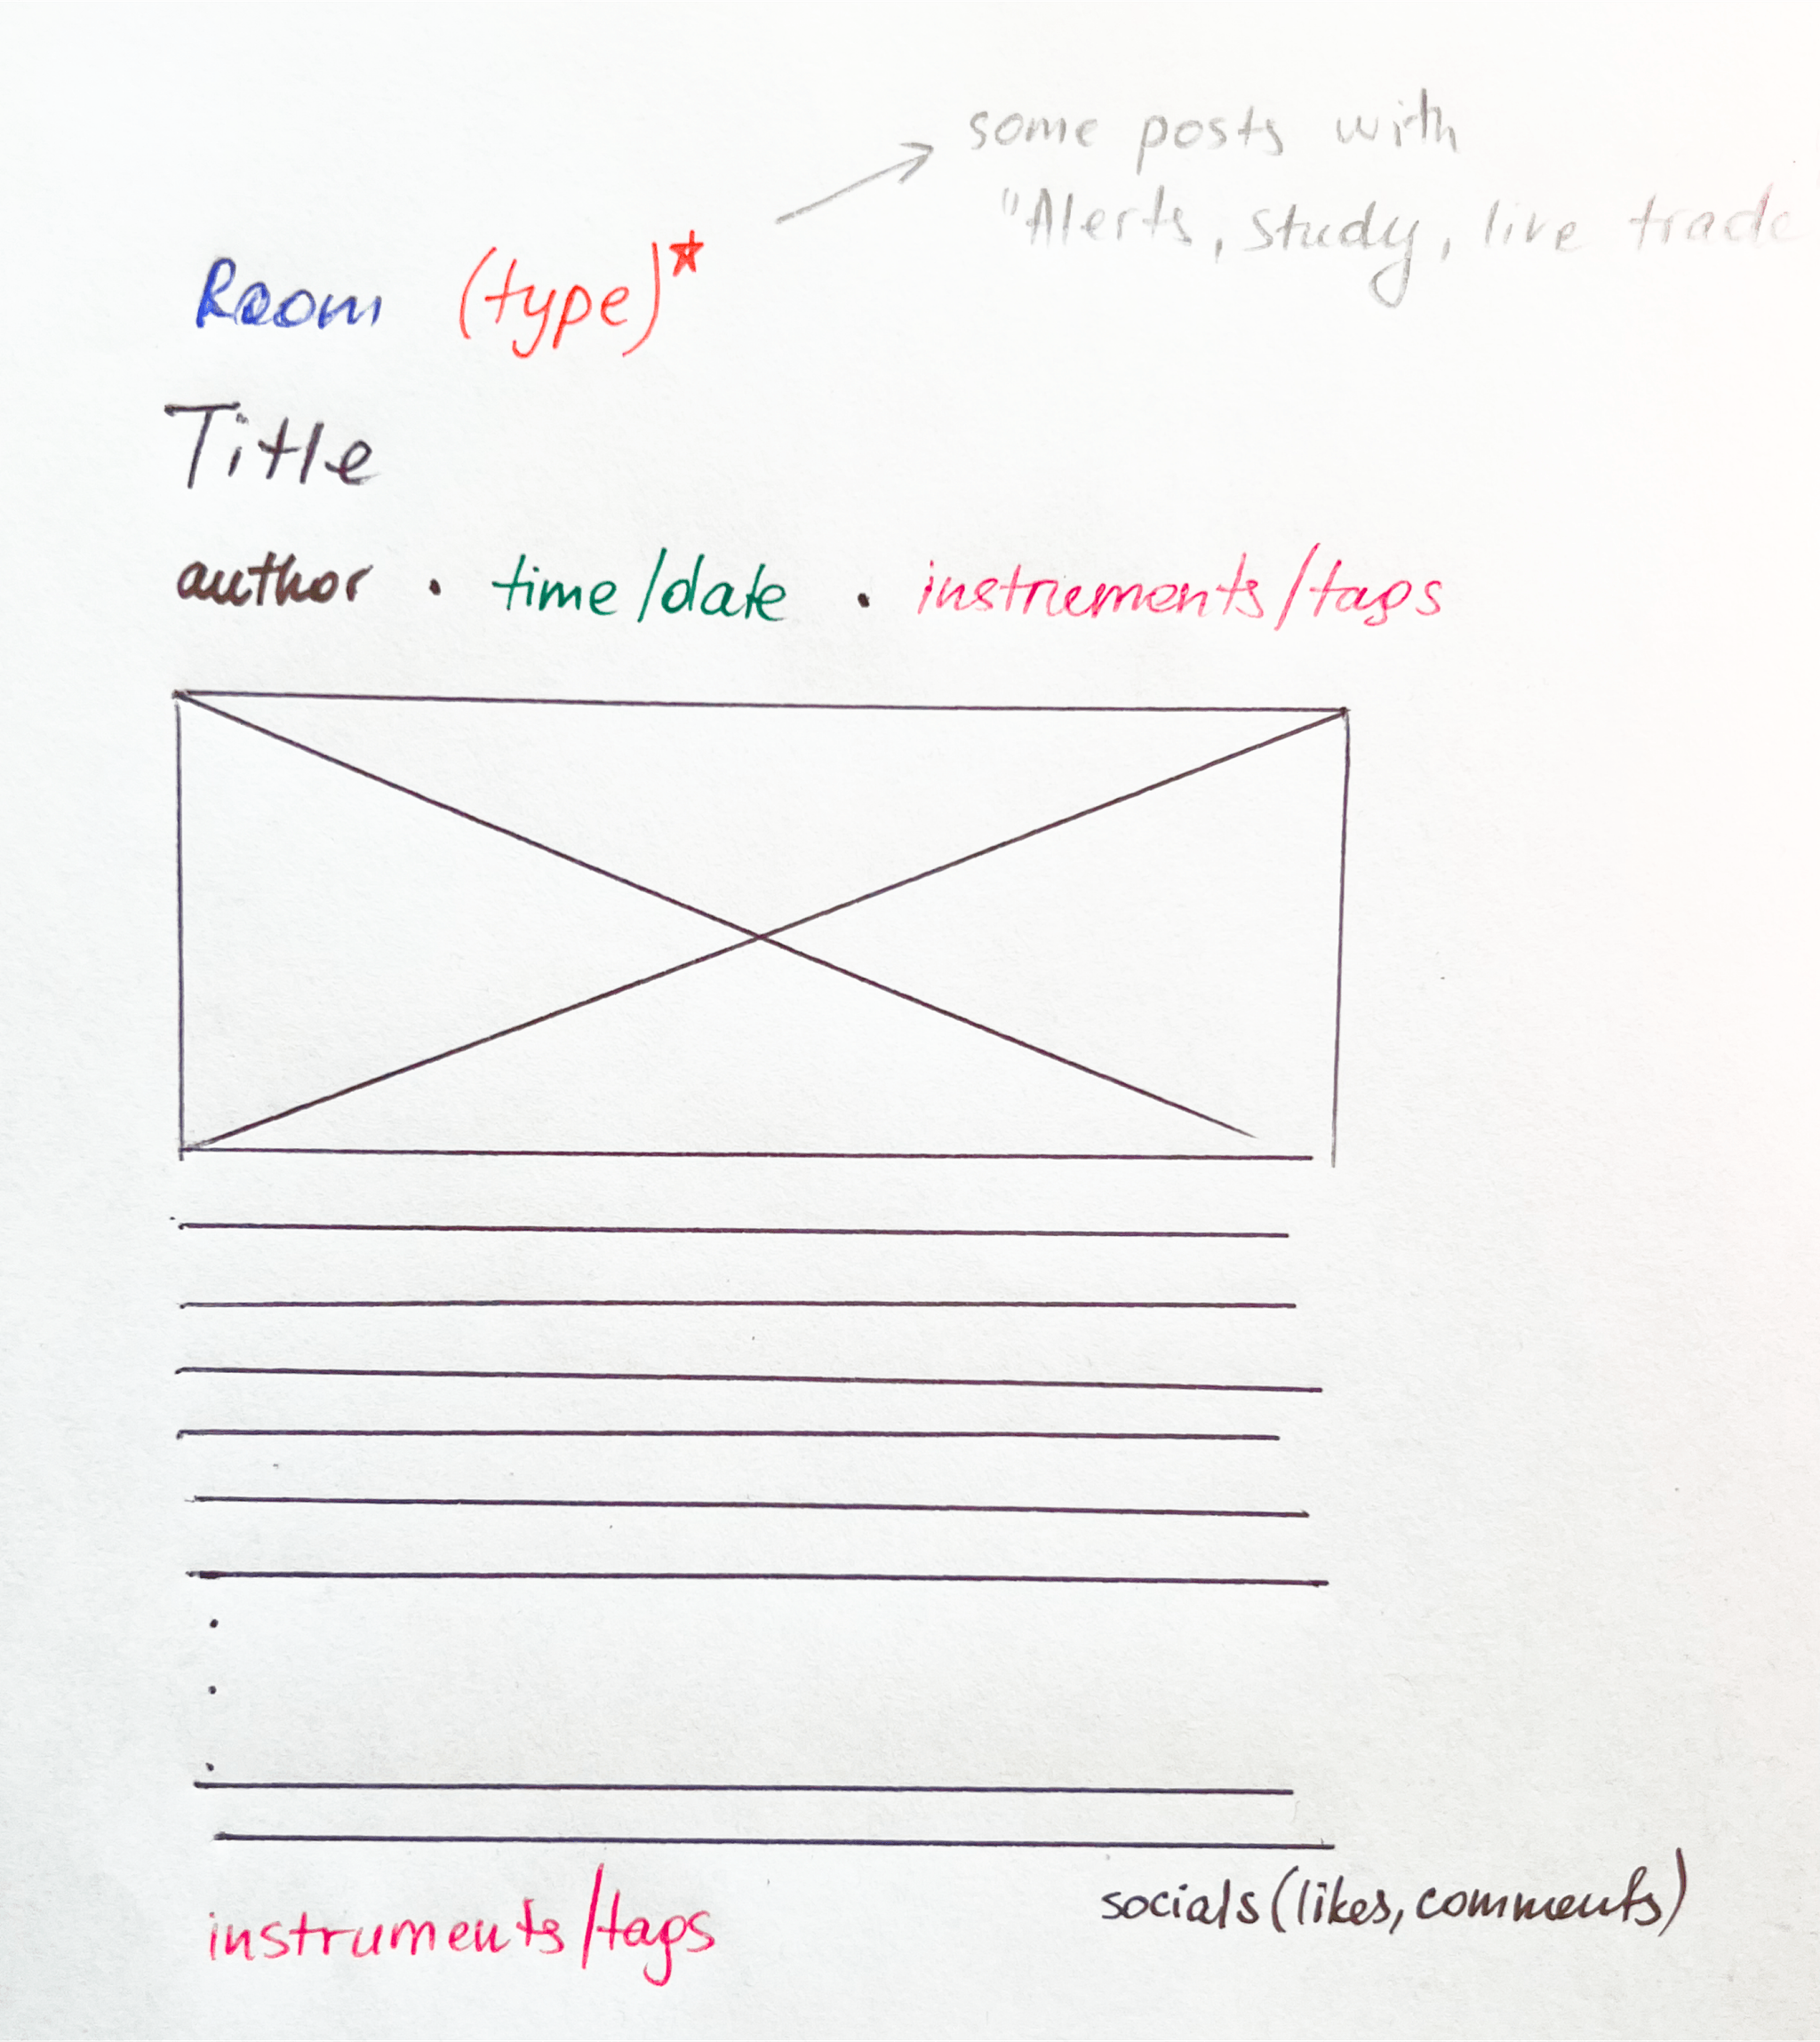 some posts with
"Alerts, study, live trade
Room (type)*
Title
author · time/date · instruments/tags
instruments/tags
socials (likes, comments)